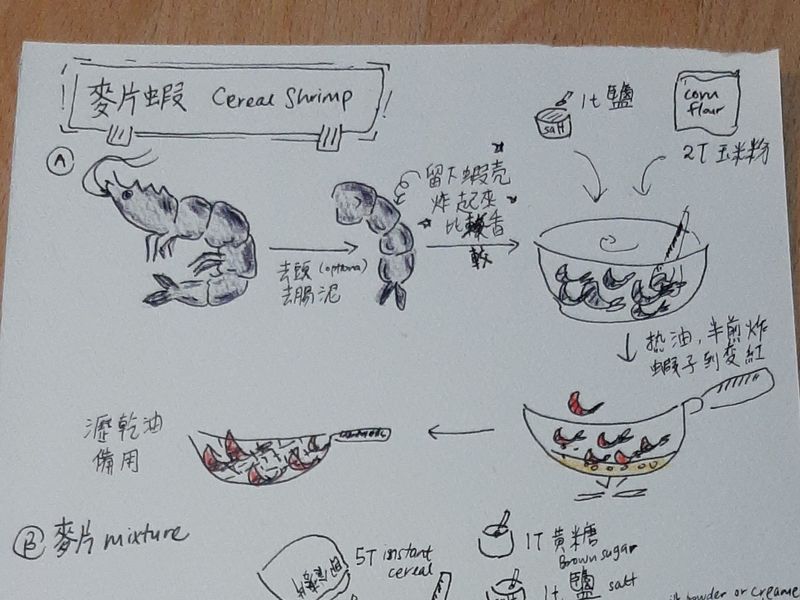 麥片蝦 Cereal Shrimp
1t 鹽
salt
corn
flour
2T 玉米粉
A
留下蝦壳
炸起來
比較香
較
去頭 (optional)
去腸泥
热油,半煎炸
蝦子到变紅
瀝乾油
備用
B 麥片 mixture
5T instant
cereal
1T 黄糖
Brown sugar
1t 鹽 salt
powder or creame